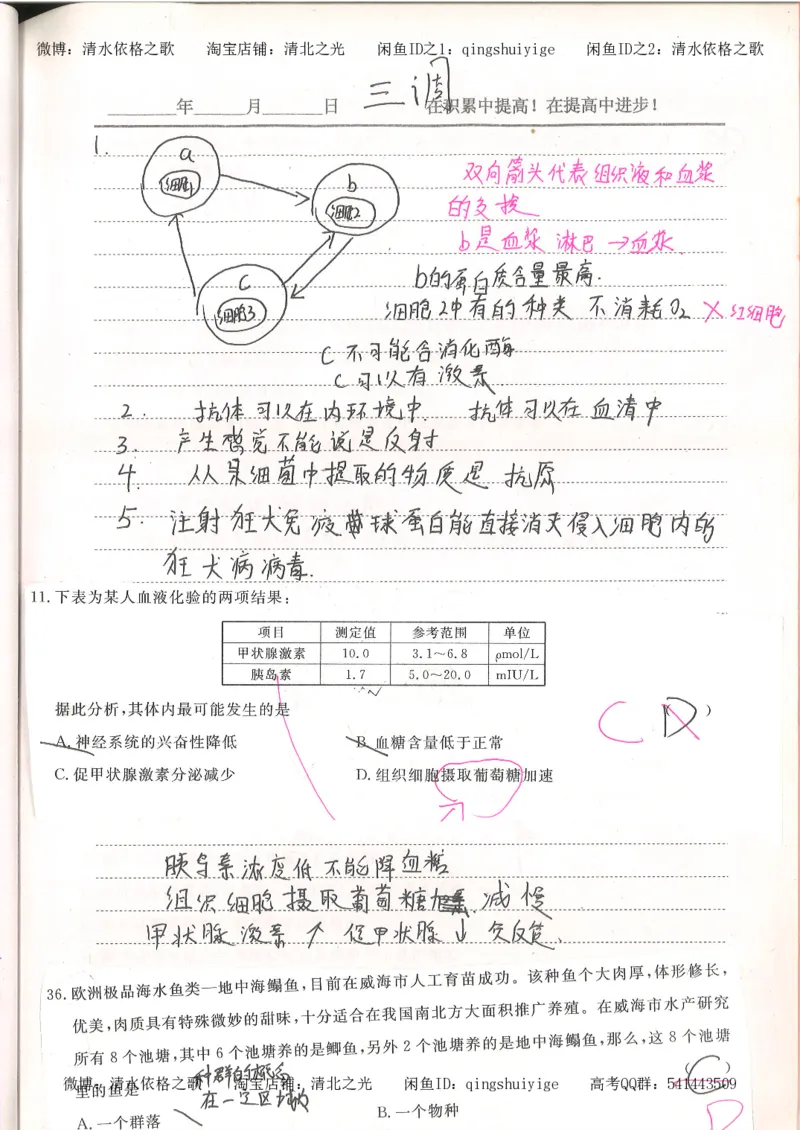 微博：清水依格之歌 淘宝店铺：清北之光 闲鱼ID之1：qingshuiyige 闲鱼ID之2：清水依格之歌
三调
年 月 日 在积累中提高！在提高中进步！
1.
a
细胞1
b
细胞2
c
细胞3
双向箭头代表组织液和血浆
的交换
b是血浆 淋巴→血浆
b的蛋白质含量最高.
细胞2中有的种类 不消耗O2 ×红细胞
C 不可能含消化酶
C 可以有激素
2. 抗体可以在内环境中. 抗体可以在血清中
3. 产生感觉不能说是反射
4. 从某细菌中提取的物质是 抗原
5. 注射狂犬免疫球蛋白能直接消灭侵入细胞内的
狂犬病病毒.
11.下表为某人血液化验的两项结果：
项目 测定值 参考范围 单位
甲状腺激素 10.0 3.1～6.8 ρmol/L
胰岛素 1.7 5.0～20.0 mIU/L
据此分析，其体内最可能发生的是 C （D）
A.神经系统的兴奋性降低 B.血糖含量低于正常
C.促甲状腺激素分泌减少 D.组织细胞摄取葡萄糖加速
胰岛素浓度低 不能降血糖
组织细胞摄取葡萄糖 减慢
甲状腺激素↑ 促甲状腺↓ 负反馈.
36.欧洲极品海水鱼类—地中海鳎鱼，目前在威海市人工育苗成功。该种鱼个大肉厚，体形修长，
优美，肉质具有特殊微妙的甜味，十分适合在我国南北方大面积推广养殖。在威海市水产研究
所有8个池塘，其中6个池塘养的是鲫鱼，另外2个池塘养的是地中海鳎鱼，那么，这8个池塘
种群的概念
微博：清水依格之歌 淘宝店铺：清北之光 闲鱼ID：qingshuiyige 高考QQ群：541443509
里的鱼是
在一定区域
A.一个群落 B.一个物种
D